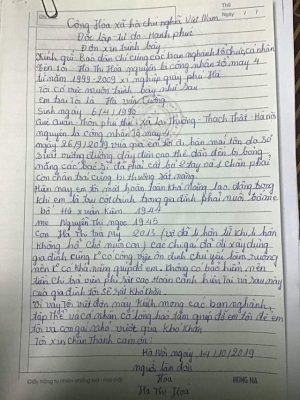 Thứ
Ngày
Cộng Hòa xã hội chủ nghĩa Việt Nam
Độc lập - Tự do - Hạnh phúc
Đơn xin trình bày
Kính gửi: Báo dân chí cùng các ban nghành tổ chức, cá nhân
Tên tôi là Hà Thị Hoa nguyên là công nhân tổ may 4
từ năm 1999-2009 xí nghiệp giầy phú Hà
Tôi có nguyện muốn trình bày như sau
Em trai Tôi là Hà văn Cường
Sinh ngày 6/4/1990
Quê Quán - Thôn phú thứ xã lại Thượng - Thạch Thất - Hà nội
nguyên là công nhân tổ may 4
ngày 26/9/2019 vừa qua em tôi đi bắn mái tôn do sơ
suất vướng đường dây điện cao thế dẫn đến bị bỏng
nặng các bác sĩ đã phải cắt bỏ 2 tay và 1 chân phải
Còn chân trái cũng bị thương rất nặng.
Hiện nay em tôi mất hoàn toàn khả năng lao động trong
khi em là lao động chính trong gia đình phải nuôi bố mẹ
bố Hà xuân Kiêm 1944
mẹ Nguyễn Thị ngọc 1945
Con Hà Thị Trà My 2015 (vợ đã li hôn từ khi li hôn
không hề chu cấp nuôi con) các chị gái đã đi xây dựng
gia đình cũng k° có công việc ổn định chủ yếu làm ruộng
nên k° có khả năng giúp đỡ em. không có bảo hiểm nên
tiền chi trả viện phí rất cao Hoàn cảnh hiện tại và sau này
của gia đình tôi sẽ rất khó khăn
Vì vậy tôi viết đơn này kính mong các ban nghành
tập Thể và cá nhân có lòng hảo tâm giúp đỡ em tôi để em
tôi và con gái nhỏ vượt qua khó khăn
Tôi xin chân Thành cảm ơn!
Hà nội ngày 14/10/2019
người làm đơn
Hoa
Hà Thị Hoa
HỒNG HÀ